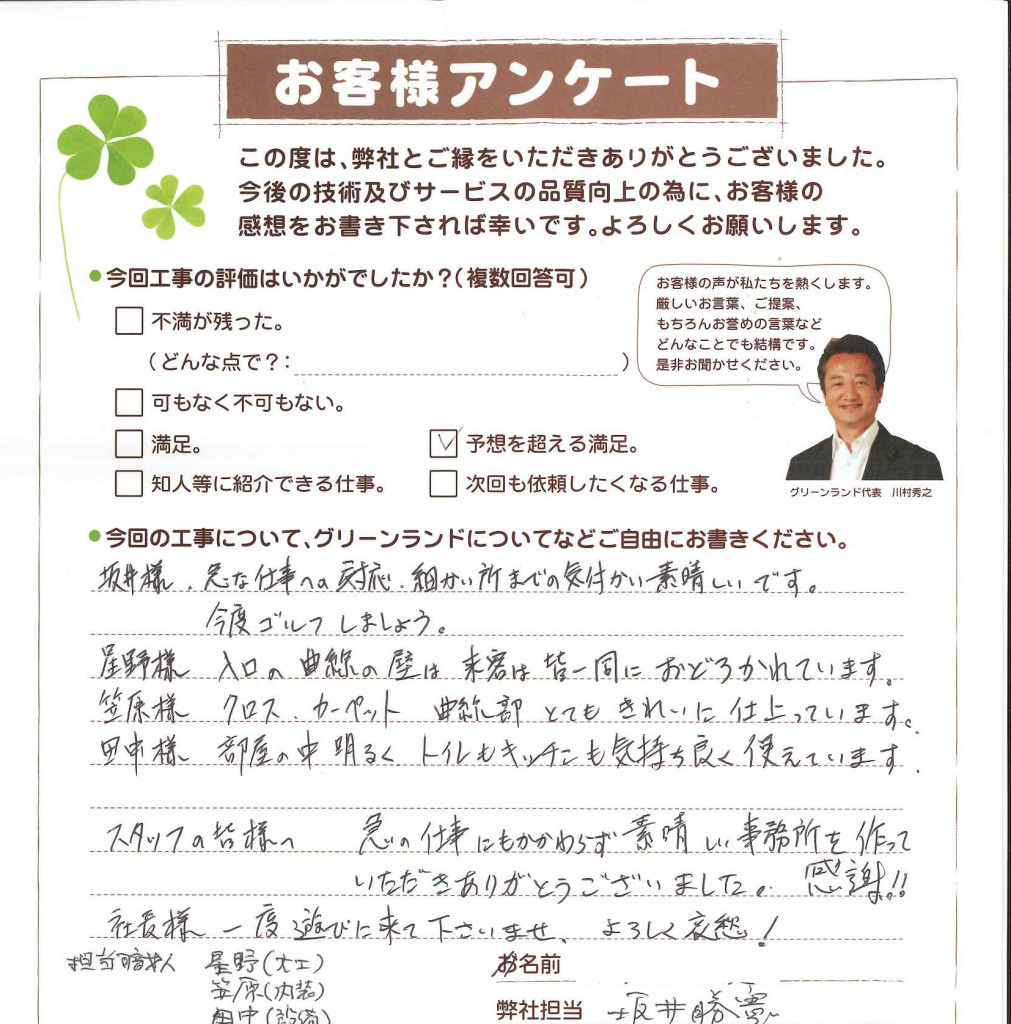 お客様アンケート
この度は、弊社とご縁をいただきありがとうございました。
今後の技術及びサービスの品質向上の為に、お客様の
感想をお書き下されば幸いです。よろしくお願いします。
●今回工事の評価はいかがでしたか？(複数回答可)
不満が残った。
(どんな点で？: )
可もなく不可もない。
満足。
予想を超える満足。
知人等に紹介できる仕事。
次回も依頼したくなる仕事。
お客様の声が私たちを熱くします。
厳しいお言葉、ご提案、
もちろんお誉めの言葉など
どんなことでも結構です。
是非お聞かせください。
グリーンランド代表 川村秀之
●今回の工事について、グリーンランドについてなどご自由にお書きください。
坂井様、急な仕事への対応、細かい所までの気付かい素晴しいです。
今度ゴルフしましょう。
星野様 入口の曲線の壁は来客は皆一同におどろかれています。
笠原様 クロス、カーペット 曲線部 とてもきれいに仕上っています。
田中様 部屋の中明るく トイレもキッチンも気持ち良く使えています。
スタッフの皆様へ 急の仕事にもかかわらず素晴しい事務所を作って
いただきありがとうございました。感謝!!
社長様 一度遊びに来て下さいませ、よろしく哀愁!
担当職人 星野(大工)
笠原(内装)
田中(設備)
お名前
弊社担当 坂井勝